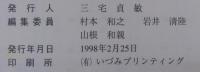 発行人　三宅貞敏
編集委員　村本和之　岩井清陸
山根和親
発行年月日　1998年2月25日
印刷所　(有)いづみプリンティング